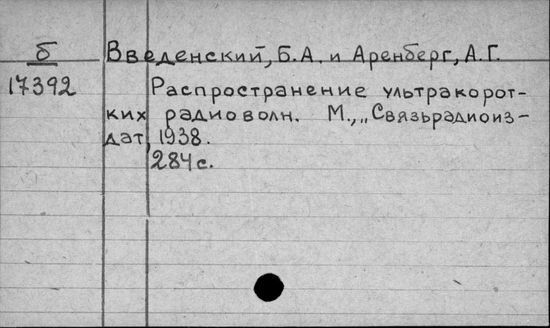 б Введенский, Б.А. и Аренберг, А.Г.
17392 Распространение ультракорот-
ких радиоволн. М., „Связьрадиоиз-
дат, 1938.
284 с.